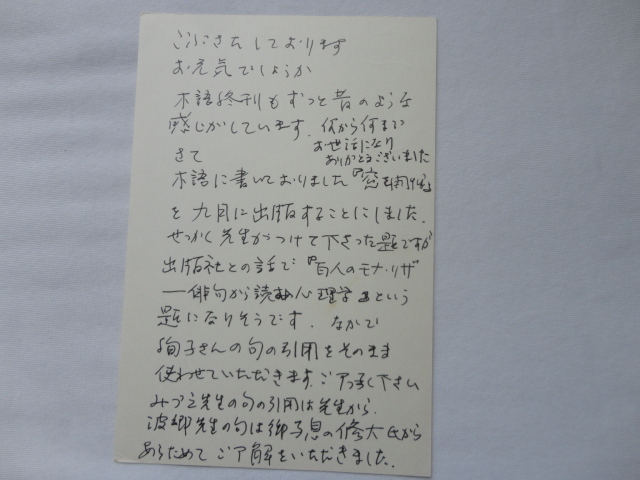 ごぶさたしております
お元気でしょうか
木語終刊もずっと昔のような
感じがしています。何から何まで
お世話になり
ありがとうございました
さて
木語に書いておりました『窓を開けば』
を九月に出版することにしました。
せっかく先生がつけて下さった題ですが
出版社との話で『百人のモナ・リザ
―俳句から読む心理学』という
題になりそうです。なかで
絢子さんの句の引用をそのまま
使わせていただきます。ご了承下さい
みづえ先生の句の引用は先生から、
波郷先生の句は御子息の修大氏から
あらためてご了解をいただきました。